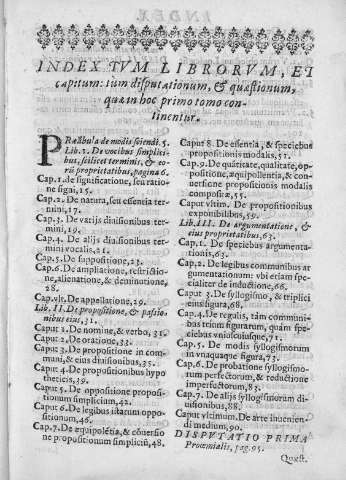 INDEX TVM LIBRORVM, ET
capitum: tùm disputationum, & quæstionum,
quæ in hoc primo tomo con-
tinentur.
PRæãbula de modis sciendi. 5.
Lib. I. De vocibus simplici-
bus, scilicet terminis, & eo-
rũ proprietatibus, pagina 6.
Cap. 1. de significatione, seu ratio
ne signi, 15.
Cap. 2. De natura, seu essentia ter
mini, 17.
Cap. 3. De varijs diuisionibus ter
mini, 19.
Cap. 4. De alijs diuisionibus ter
mini vocalis, 21.
Cap. 5. De suppositione, 23.
Cap. 6. De ampliatione, restrictio
ne, alienatione, & deminutione,
28.
Cap. vlt. De appellatione, 29.
Lib. II. De propositione, & passio-
nibus eius, 31.
Caput 1. De nomine, & verbo, 31.
Caput 2. De oratione, 33.
Caput 3. De propositione in com
muni, & eius diuisionibus, 35.
Caput 4. De propositionibus hypo
theticis, 39.
Caput 5. De oppositione proposi-
tionum simplicium, 42.
Caput 6. De legibus istarum oppo-
sitionum, 46.
Cap. 7. De æquipolẽtia, & cõuersio
ne propositionum simpliciũ, 48.
Caput 8. De essentia, & speciebus
propositionis modalis, 51.
Cap. 9. De quãtitate, qualitate, op-
positione, æquipollentia, & con-
uersione propositionis modalis
compositæ, 55.
Caput vltim. De propositionibus
exponibilibus, 59.
Lib. III. De argumentatione, &
eius proprietatibus, 63.
Cap. 1. De speciebus argumenta-
tionis, 63.
Cap. 2. De legibus communibus ar
gumentationum: vbi etiam spe-
cialiter de inductione, 66.
Caput 3. De syllogismo, & triplici
eius figura, 68.
Cap. 4. De regulis, tàm communi-
bus trium figurarum, quàm spe-
ciebus vniuscuiusque, 71.
Cap. 5. De modis syllogismorum
in vnaquaque figura, 73.
Cap. 6. De probatione syllogismo-
rum perfectorum, & reductione
imperfectorum, 83.
Cap. 7. De alijs syllogismorum di
uisionibus, 88.
Caput vltimum. De arte inuenien-
di medium, 90.
DISPVTATIO PRIMA
Proœmialis, pag. 95.
Quæst.